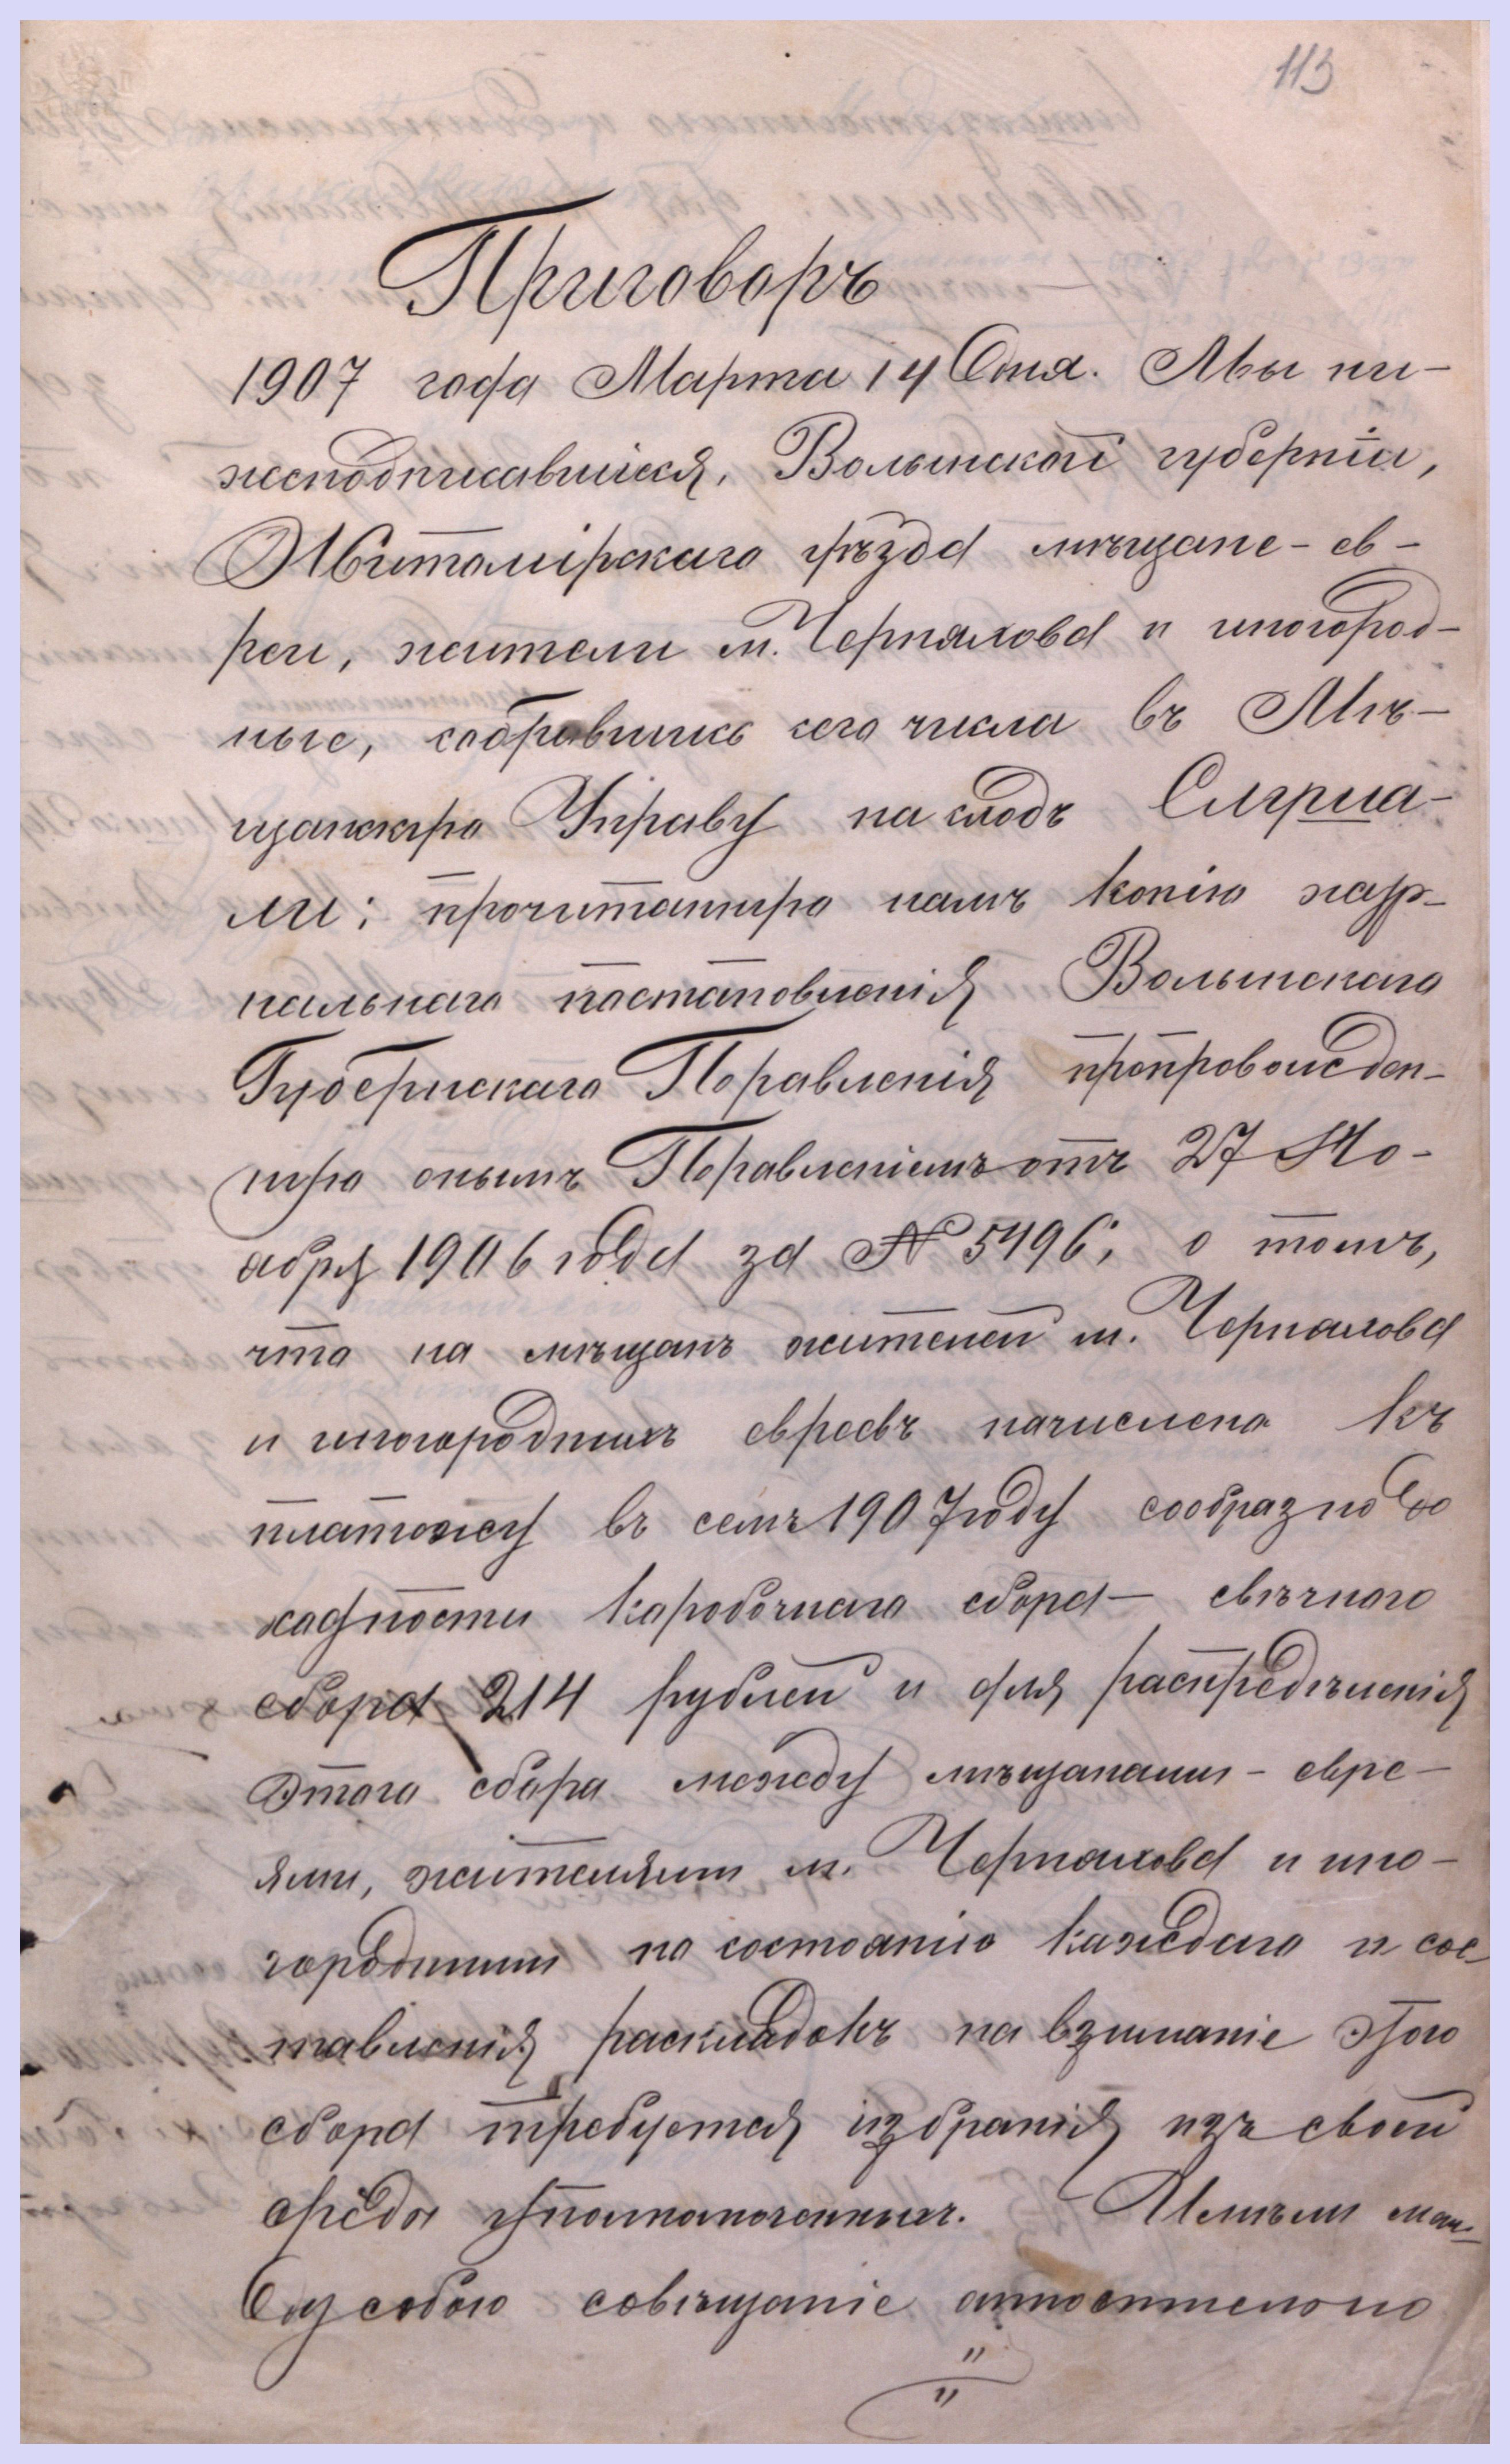 113
Приговоръ
1907 года Марта 14 дня. Мы ни-
жеподписавшіеся, Волынской губерніи,
Житомірскаго уѣзда мѣщане-ев-
реи, жители м. Черняхова и иногород-
ные, собравшись сего числа въ Мѣ-
щанскую Управу на сходъ Слуша-
ли: прочитанную намъ копію жур-
нальнаго постановленія Волынскаго
Губернскаго Правленія препровожден-
ную онымъ Правленіемъ отъ 27 Но-
ября 1906 года за № 5496; о томъ,
что на мѣщанъ жителей м. Черняхова
и иногороднихъ евреевъ начислено къ
платежу въ семъ 1907 году сообразно до
ходности коробочнаго сбора — свѣчного
сбора 214 рублей и для распредѣленія
этого сбора между мѣщанами-евре-
ями, жителями м. Черняхова и ино-
городними по состоянію каждаго и сос-
тавленія раскладокъ на взиманіе этого
сбора требуется избранія изъ своей
среды уполномоченныхъ. Имѣли меж-
ду собою совѣщаніе относительно